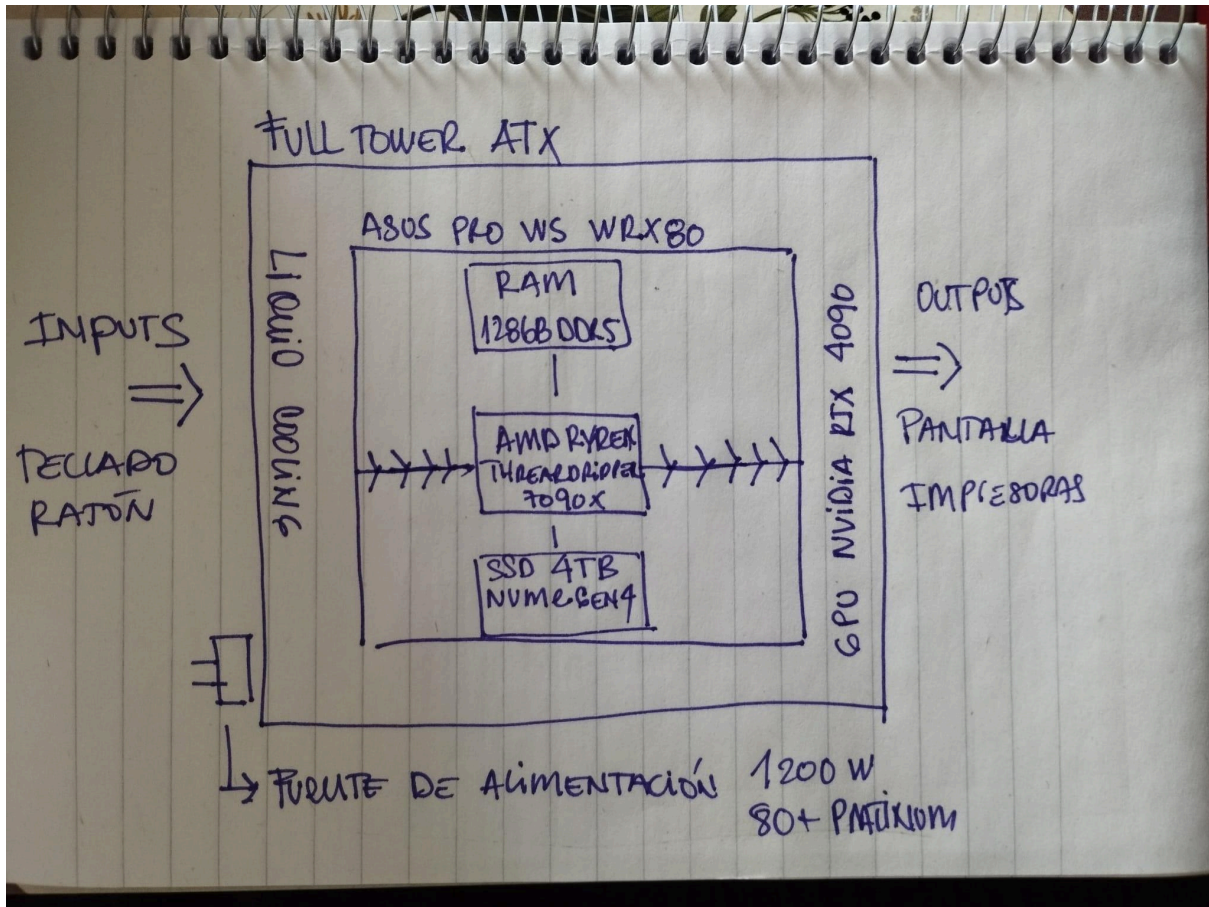 FULL TOWER ATX
ASUS PRO WS WRX80
LIQUID COOLING
RAM
128GB DDR5
AMD RYZEN
THREARDRIPPER
7090X
SSD 4TB
NVMe GEN4
GPU NVIDIA RTX 4090
INPUTS
TECLADO
RATÓN
OUTPUTS
PANTALLA
IMPRESORAS
FUENTE DE ALIMENTACIÓN 1200 W
80+ PLATINUM